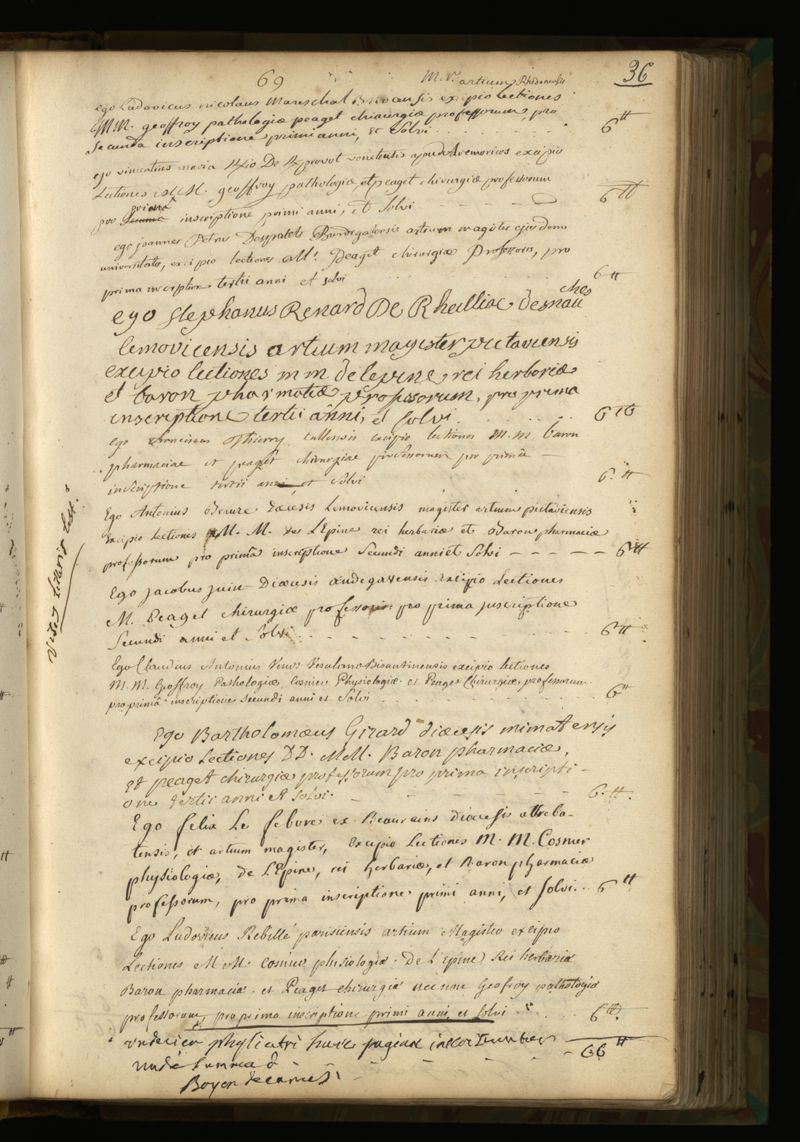 69
36
M. Vr. artium Rhedonensis
Ego Ludovicus nicolaus Mareschal excipio lectiones
MM. geoffroy pathologiæ peaget chirurgiæ professorum, pro
secunda inscriptione primi anni, et solvi 6 ₶
ego vincentius maria venetensis apud Aremoricos excipio
Lectiones M.M. geoffroy pathologiæ, et peaget chirurgiæ professorum
pro primâ inscriptione primi anni, et solvi 6 ₶
ego joannes Petrus Burdigalensis artium magister ejusdem
universitatis, excipio lectiones Mi. Peaget chirurgiæ Professoris, pro
prima inscriptione tertii anni et solvi 6 ₶
ego stephanus Renard De Rheilliac desnauches
lemovicensis artium magister pictaviensis
excipio lectiones m m de lepine rei herbariæ
et baron pharmatiæ professorum, pro prima
inscriptione tertii anni, et solvi 6 ₶
ego franciscus Thierry tullensis excipio lectiones M. M. baron
pharmaciae et peaget chirurgiae professorum pro primâ
inscriptione tertii anni et solvi 6 ₶
Ego Antonius diœcesis Lemovicensis magister artium pictaviensis
excipio Lectiones M. M. de L'Epine rei herbariæ et Baron pharmaciæ
professorum pro primâ inscriptione secundi anni et solvi 6 ₶
Ego jacobus juin Diœcesis andegavensis excipio Lectiones
M. Peaget chirurgiæ professoris pro prima inscriptione
secundi anni et solvi 6 ₶
Ego Claudius Antonius excipio lectiones
M. M. Geoffroy Pathologiæ Cosnier Physiologiæ et Peaget Chirurgiæ, professorum
pro primâ inscriptione secundi anni et solvi 6 ₶
Ego Bartholomæus Girard diœcesis mimatensis
excipio Lectiones DD. MM. Baron pharmaciæ,
Et peaget chirurgiæ professorum pro prima inscripti-
one tertii anni et solvi. 6 ₶
Ego felix Le febvre ex Beaurains diœcesis attreba-
tensis, et artium magister, excipio Lectiones M. M. Cosnier
physiologiæ, de L'Epine, rei herbariæ, et Baron pharmaciæ
professorum, pro prima inscriptione primi anni, et solvi. 6 ₶
Ego Ludovicus Rebillé parisiensis artium Magister excipio
Lectiones M M. cosnier phisiologiæ. De L'Epine Rei herbariæ
Baron pharmaciæ et Peaget chirurgiæ necnon Geofroy pathologiæ
professorum, pro prima inscriptione primi anni, et solvi 6 ₶
undecim phyliatri hacce pagina inscribuntur
unde summa 66 ₶